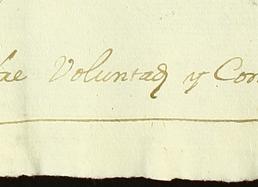 Voluntad y Con